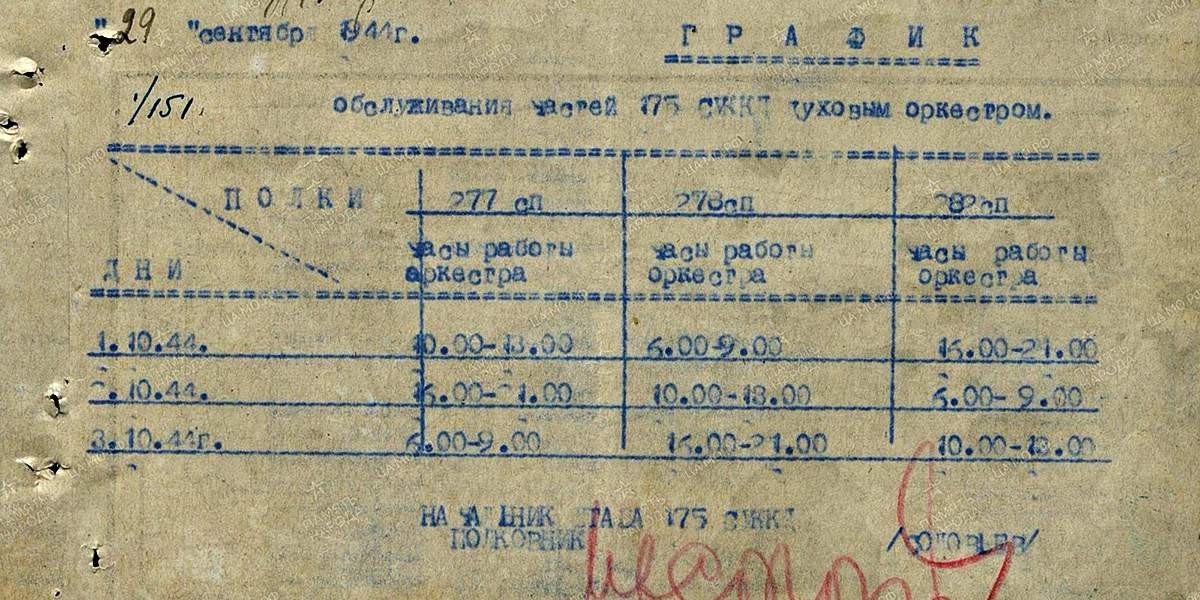 "29 "сентября 1944г.
Г Р А Ф И К
1/151.
обслуживания частей 175 СУККД духовым оркестром.
ПОЛКИ 277 сп 278сп 282сп
ДНИ
часы работы часы работы часы работы
оркестра оркестра оркестра
1.10.44. 10.00-13.00 6.00-9.00 16.00-21.00
2.10.44. 16.00-21.00 10.00-13.00 6.00- 9.00
3.10.44г. 6.00-9.00 16.00-21.00 10.00-13.00
НАЧАЛЬНИК ШТАБА 175 СУККД
ПОЛКОВНИК /СОЛОВЬЕВ/